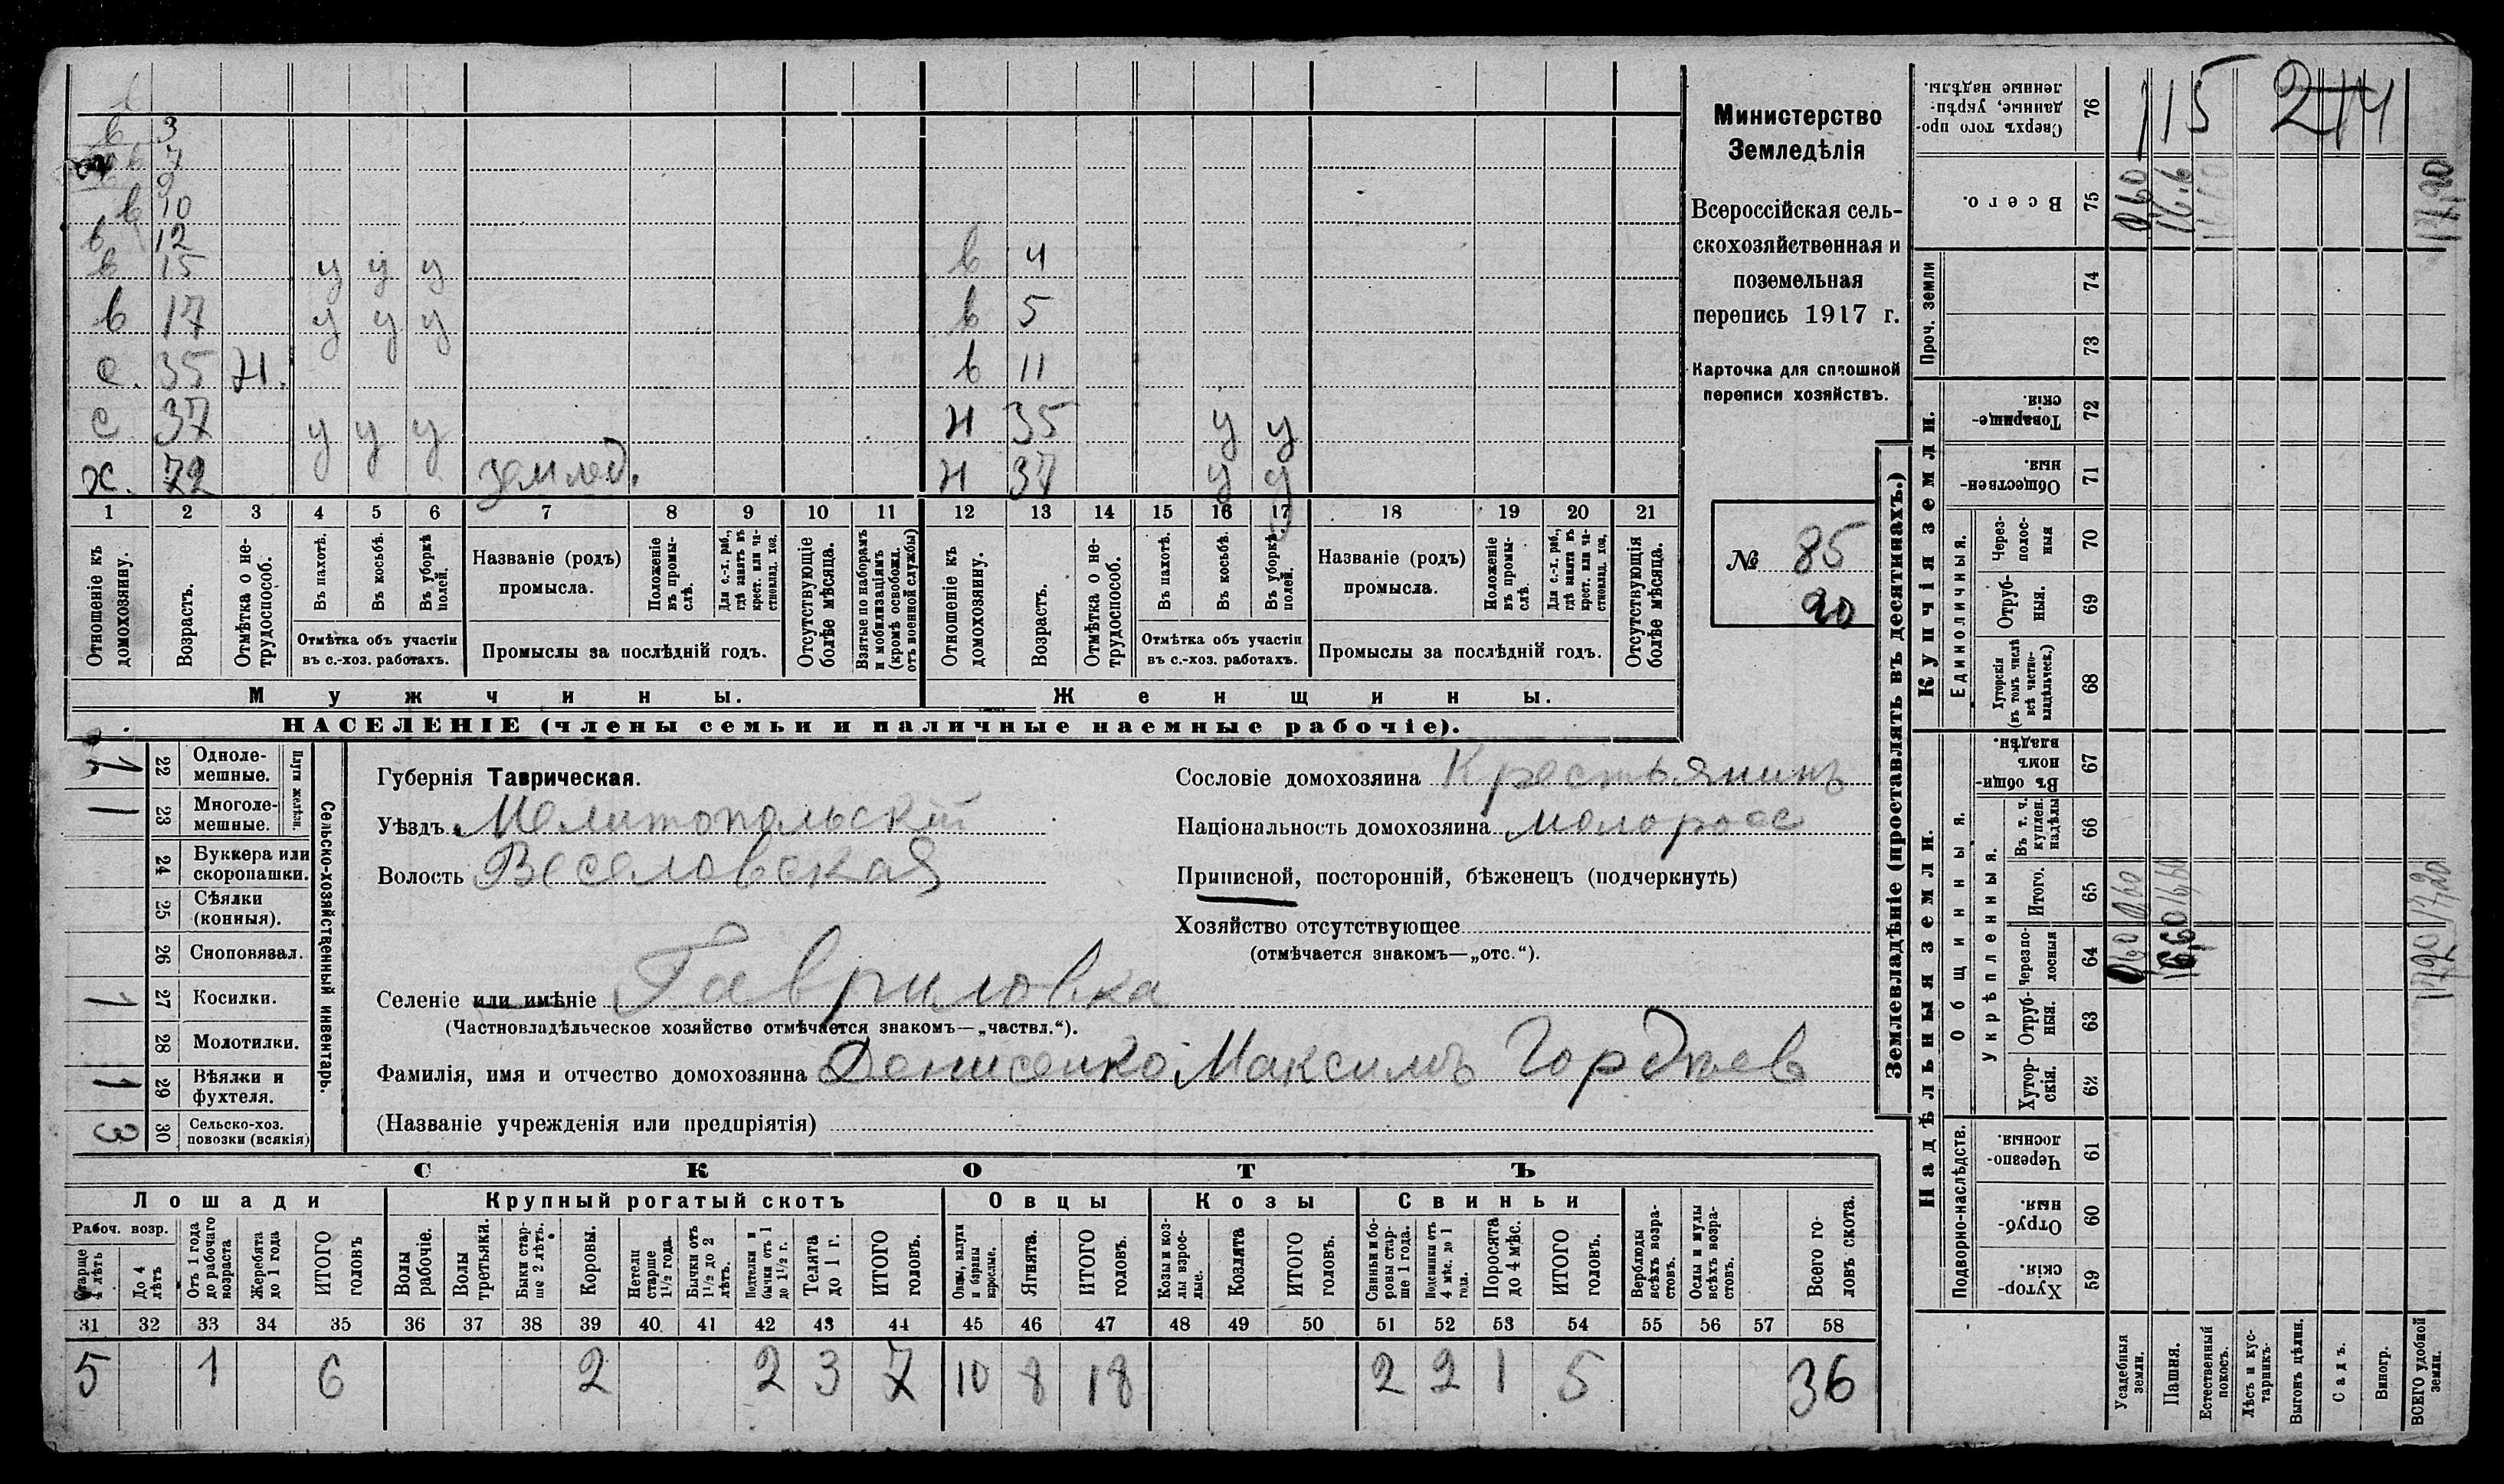 в
в 3
в 7
9
в 10
в 12
в 15 у у у
в 17 у у у
с. 35 н.
с 37 у у у
х. 72 землед.
в 4
в 5
в 11
н 35 у у
н 37 у у
1 2 3 4 5 6 7 8 9 10 11 12 13 14 15 16 17 18 19 20 21
Отношеніе къ домохозяину.
Возрастъ.
Отмѣтка о нетрудоспособ.
Въ пахотѣ.
Въ косьбѣ.
Въ уборкѣ полей.
Отмѣтка объ участіи
въ с.-хоз. работахъ.
Названіе (родъ)
промысла.
Положеніе въ промыслѣ.
Для с.-х. раб., гдѣ занятъ въ крест. или частновлад. хоз.
Промыслы за послѣдній годъ.
Отсутствующіе болѣе мѣсяца.
Взятые по наборамъ и мобилизаціямъ (кромѣ освобожд. отъ военной службы)
Отношеніе къ домохозяину.
Возрастъ.
Отмѣтка о нетрудоспособ.
Въ пахотѣ.
Въ косьбѣ.
Въ уборкѣ полей.
Отмѣтка объ участіи
въ с.-хоз. работахъ.
Названіе (родъ)
промысла.
Положеніе въ промыслѣ.
Для с.-х. раб., гдѣ занята въ крест. или частновлад. хоз.
Промыслы за послѣдній годъ.
Отсутствующія болѣе мѣсяца.
Мужчины.
Женщины.
НАСЕЛЕНІЕ (члены семьи и наличные наемные рабочіе).
Министерство
Земледѣлія
Всероссійская сель-
скохозяйственная и
поземельная
перепись 1917 г.
Карточка для сплошной
переписи хозяйствъ.
№ 85
90
1 22 Однолемешные.
1 23 Многолемешные.
Плуги желѣзн.
24 Буккера или скоропашки.
25 Сѣялки (конныя).
26 Сноповязал.
1 27 Косилки.
28 Молотилки.
1 29 Вѣялки и фухтеля.
3 30 Сельско-хоз. повозки (всякія)
Сельско-хозяйственный инвентарь.
Губернія Таврическая.
Уѣздъ Мелитопольскій
Волость Веселовская
Сословіе домохозяина Крестьянинъ
Національность домохозяина малоросс
Приписной, посторонній, бѣженецъ (подчеркнуть)
Хозяйство отсутствующее
(отмѣчается знакомъ—„отс.“).
Селеніе или имѣніе Гавриловка
(Частновладѣльческое хозяйство отмѣчается знакомъ—„частвл.“).
Фамилія, имя и отчество домохозяина Денисенко Максимъ Гордѣев
(Названіе учрежденія или предпріятія)
СКОТЪ
Лошади
Крупный рогатый скотъ
Овцы
Козы
Свиньи
Рабоч. возр.
Старше 4 лѣтъ
До 4 лѣтъ
Отъ 1 года до рабочаго возраста
Жеребята до 1 года
ИТОГО головъ
Волы рабочіе.
Волы третьяки.
Быки старше 2 лѣтъ.
Коровы.
Нетели старше 1½ года.
Бычки отъ 1½ до 2 лѣтъ.
Подтелки и бычки отъ 1 до 1½ г.
Телята до 1 г.
ИТОГО головъ.
Овцы, валухи и бараны взрослые.
Ягнята.
ИТОГО головъ.
Козы и козлы взрослые.
Козлята
ИТОГО головъ.
Свиньи и боровы старше 1 года.
Подсвинки отъ 4 мѣс. до 1 года.
Поросята до 4 мѣс.
ИТОГО головъ.
Верблюды всѣхъ возрастовъ.
Ослы и мулы всѣхъ возрастовъ.
Всего головъ скота.
31 32 33 34 35 36 37 38 39 40 41 42 43 44 45 46 47 48 49 50 51 52 53 54 55 56 57 58
5 1 6 2 2 3 7 10 8 18 2 2 1 5 36
Землевладѣніе (проставлять въ десятинахъ.)
Купчія земли.
Надѣльныя земли.
Проч. земли
Единоличныя.
Общинныя.
Укрѣпленныя.
Подворно-наслѣдств.
Сверхъ того проданные, укрѣпленные надѣлы. 76 115 214
Всего. 75 0,60 16,6 17,20
74
73
Товарищескія. 72
Общественныя. 71
Черезполосныя 70
Отрубныя. 69
Хуторскія (въ томъ числѣ всѣ частновладѣльческ.) 68
Въ общинномъ владѣн. 67
Въ т. ч. куплен. надѣлы 66
Итого. 65 0,60 16,60 17,20
Черезполосныя 64 0,60 16,60 17,20
Отрубныя. 63
Хуторскія. 62
Черезполосныя. 61
Отрубныя. 60
Хуторскія. 59
Усадебныя земли.
Пашня.
Естественный покосъ.
Лѣсъ и кустарникъ.
Выгонъ цѣлин.
Садъ.
Виногр.
ВСЕГО удобной земли.